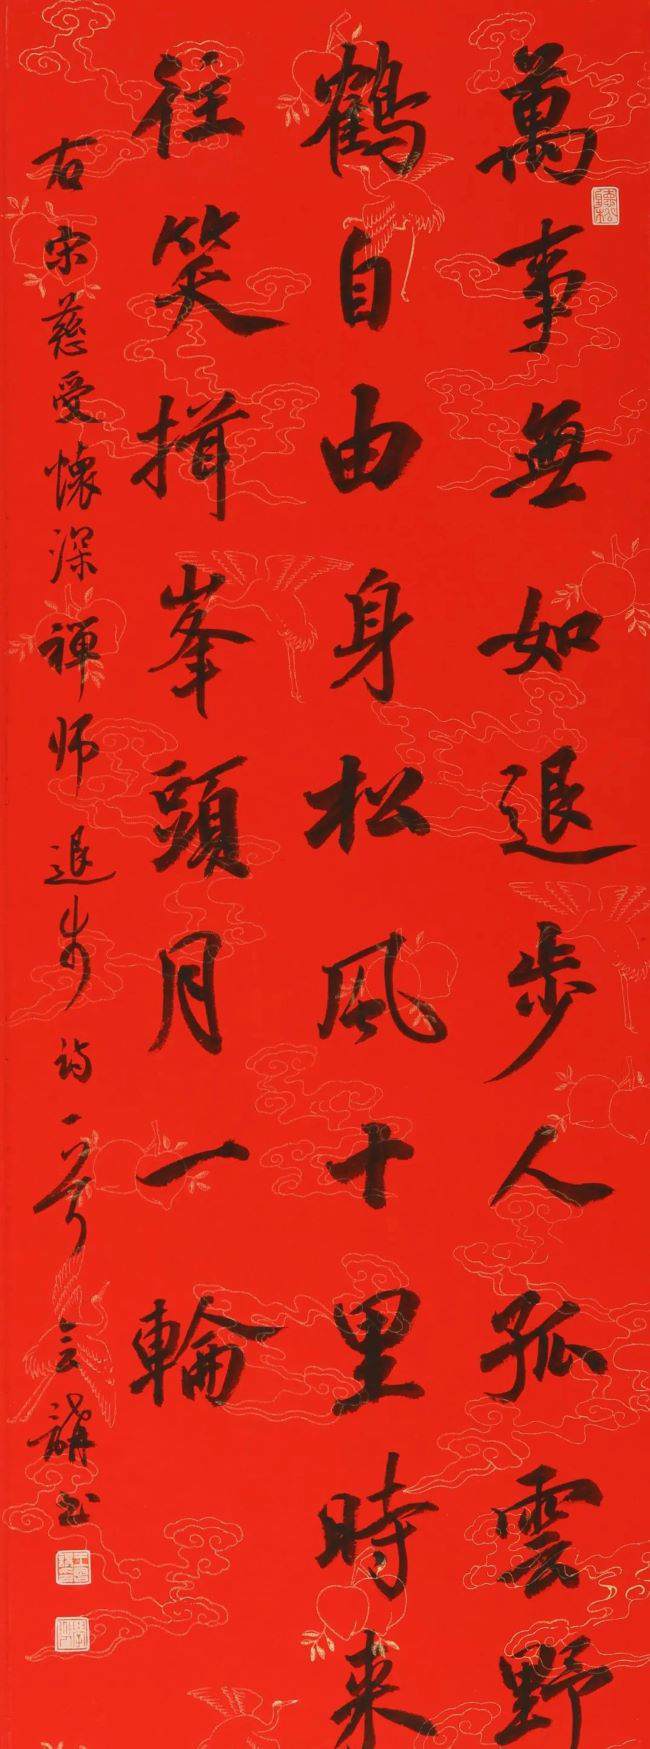 萬事無如退步人孤雲野
鶴自由身松風十里時来
往笑揖峯頭月一輪
右宋慈受懷深禪师退步诗一首 玄講书